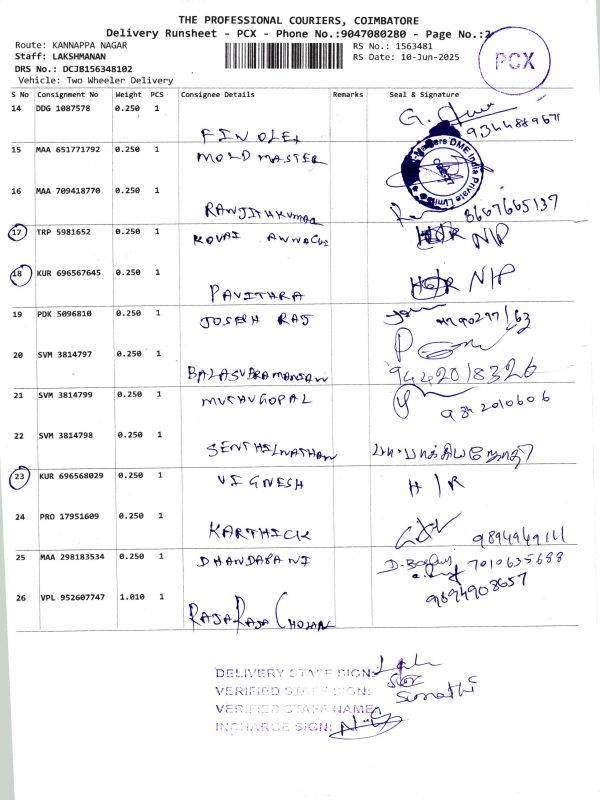 THE PROFESSIONAL COURIERS, COIMBATORE
Delivery Runsheet - PCX - Phone No.:9047080280 - Page No.:2
Route: KANNAPPA NAGAR
RS No.: 1563481
Staff: LAKSHMANAN
RS Date: 10-Jun-2025
DRS No.: DCJB156348102
Vehicle: Two Wheeler Delivery
PCX
S No Consignment No Weight PCS Consignee Details Remarks Seal & Signature
14 DDG 1087578 0.250 1 FINOLEX 9344889671
15 MAA 651771792 0.250 1 MOLD MASTER
Masters DME India Private Limited
16 MAA 709418770 0.250 1 RANJITHKUMAR 8667665137
17 TRP 5981652 0.250 1 KOVAI N/P
18 KUR 696567645 0.250 1 PAVITHRA N/P
19 PDK 5096810 0.250 1 JOSEPH RAJ
20 SVM 3814797 0.250 1 BALASUBRAMANIAN 9442018326
21 SVM 3814799 0.250 1 MUTHUGOPAL 9842010606
22 SVM 3814798 0.250 1 SENTHILNATHAN
23 KUR 696568029 0.250 1 VIGNESH H/R
24 PRO 17951609 0.250 1 KARTHICK
25 MAA 298183534 0.250 1 DHANDAPANI 7010635688
26 VPL 952607747 1.010 1 RAJA RAJA CHOLAN 9894908657
DELIVERY STAFF SIGN:
VERIFIED STAFF SIGN:
VERIFIED STAFF NAME: Sumathi
INCHARGE SIGN: